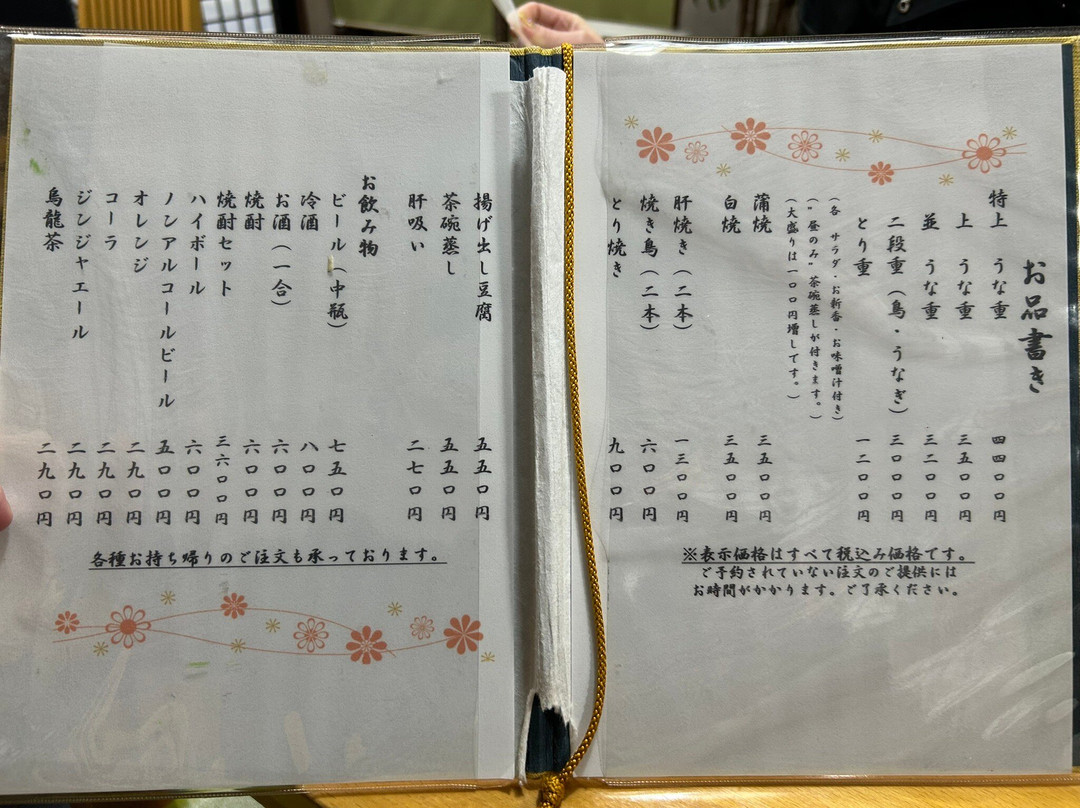 お品書き
特上 うな重 四四〇〇円
上 うな重 三五〇〇円
並 うな重 三二〇〇円
二段重(鳥・うなぎ) 三〇〇〇円
とり重 一二〇〇円
(各 サラダ・お新香・お味噌汁付き)
("昼のみ" 茶碗蒸しが付きます。)
(大盛りは一〇〇円増しです。)
蒲焼 三五〇〇円
白焼 三五〇〇円
肝焼き(二本) 一三〇〇円
焼き鳥(二本) 六〇〇円
とり焼き 九〇〇円
※表示価格はすべて税込み価格です。
ご予約されていない注文のご提供には
お時間がかかります。ご了承ください。
揚げ出し豆腐 五五〇円
茶碗蒸し 五五〇円
肝吸い 二七〇円
お飲み物
ビール(中瓶) 七五〇円
冷酒 八〇〇円
お酒(一合) 六〇〇円
焼酎 六〇〇円
焼酎セット 三六〇〇円
ハイボール 六〇〇円
ノンアルコールビール 五〇〇円
オレンジ 二九〇円
コーラ 二九〇円
ジンジャエール 二九〇円
烏龍茶 二九〇円
各種お持ち帰りのご注文も承っております。